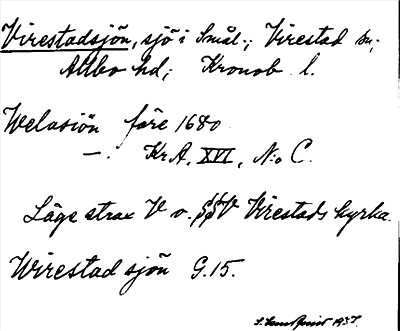 Virestadsjön, sjö i Smål.; Virestad sn;
Allbo hd; Kronob. l.
Welasiön före 1680
—. Kr A, XVI, N:o C.
Läge strax V o. SSV Virestads kyrka.
Wirestad sjön G.15.
1937.